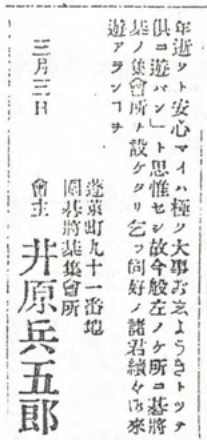 年逝クト安心マイハ極ク大事お志ようきトツテ
供ニ遊バン」ト思惟セシ故今般左ノケ所ニ碁將
棊ノ集會所ヲ設ケタリ乞フ同好ノ諸君續々御來
遊アランコヲ
三月三日
蓬萊町九十一番地
圍碁將棊集會所
會主 井原兵五郎